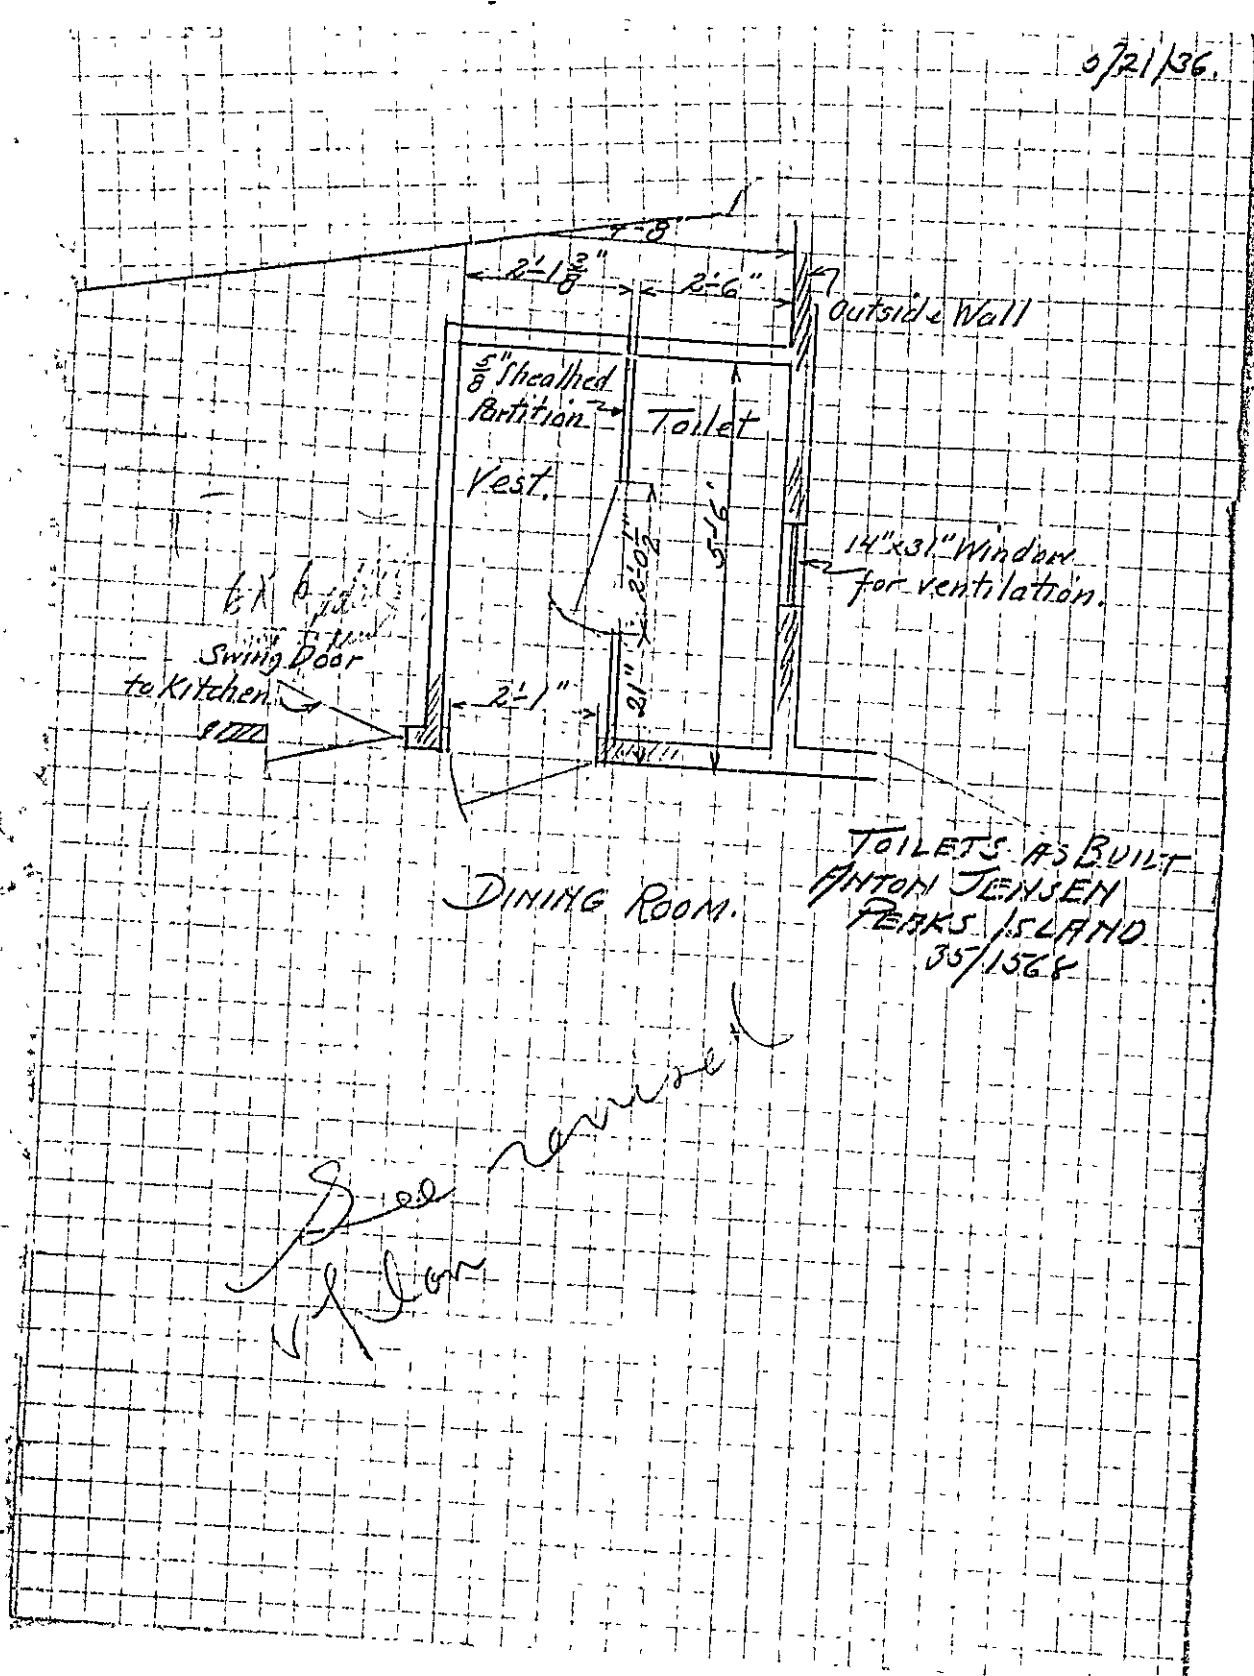 5/21/36.
2'-1 3/8"
2'-6"
Outside Wall
5/8" Sheathed
Partition
Toilet
Vest.
2'-0 1/2"
5'-6"
14"x31" Window
for ventilation.
Swing Door
to Kitchen
2'-1"
21"
DINING ROOM.
TOILETS AS BUILT
ANTON JENSEN
PEAKS ISLAND
35/1568
See revised
plan